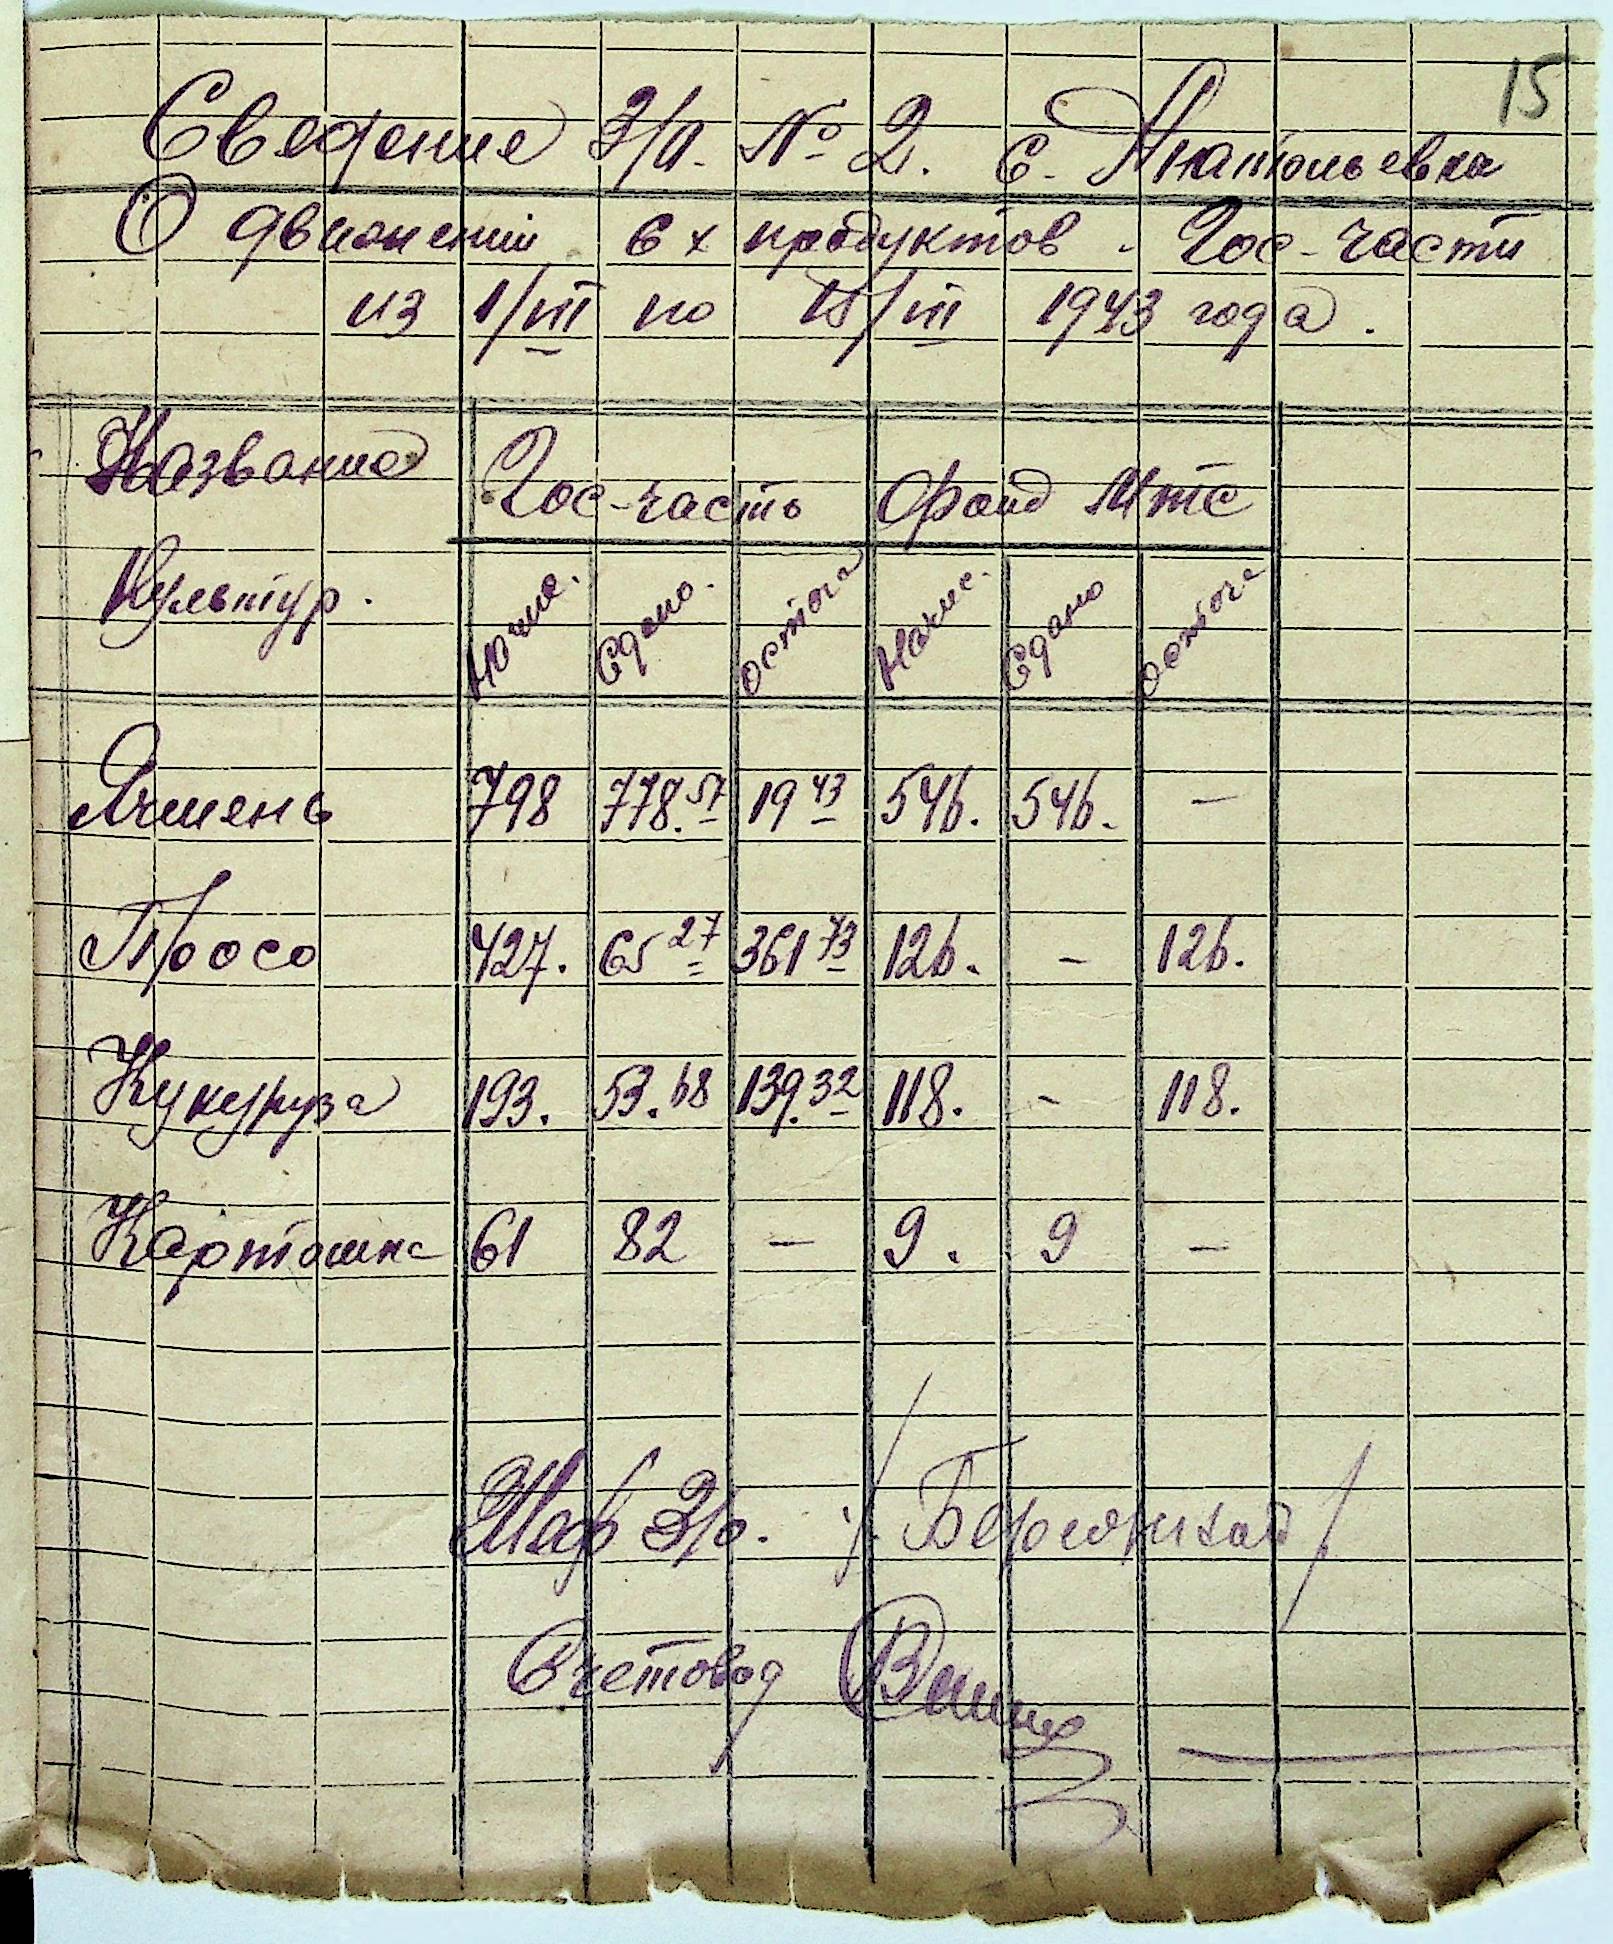 15
Сведение З/о. № 2. с. Анатольевка
О движений с х продуктов - Гос-части
из 1/III по 15/III 1943 года.
Название Гос-часть Фонд Мтс
Культур. Начис. Сдано. остача Начис. Сдано остача
Ячмень 798 778.57 19 43 546. 546. —
Просо 427. 65 27 361 73 126. - 126.
Кукуруза 193. 53.68 139.32 118. - 118.
Картошка 61 82 — 9. 9 —
З/о.
Счетовод